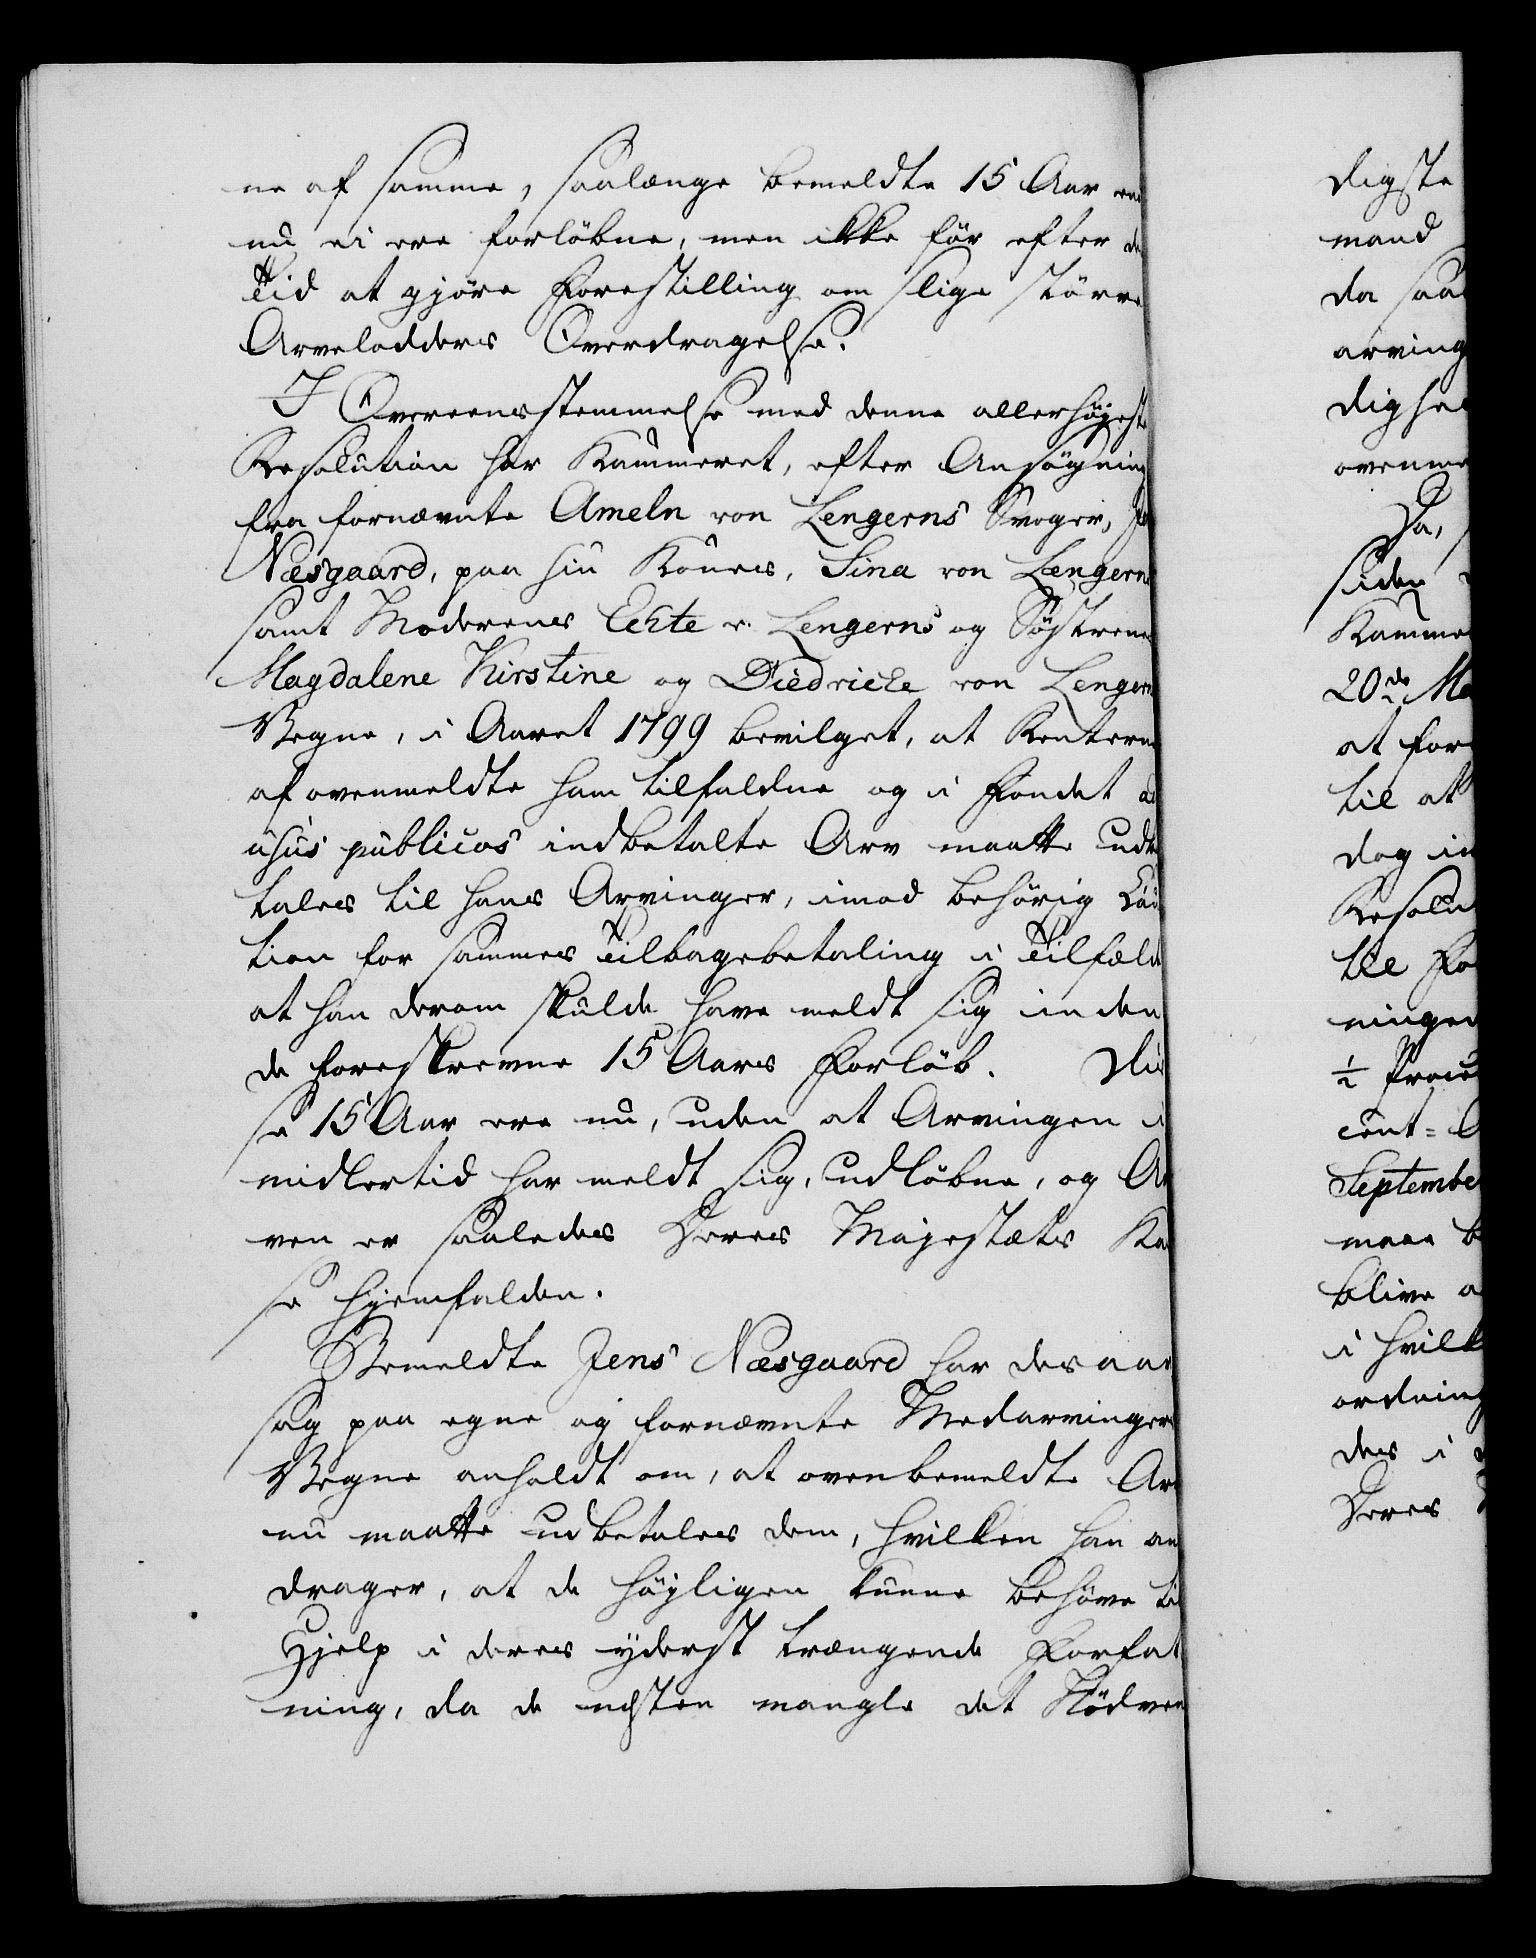 ne af samme, saalænge bemeldte 15 Aar en
nu ei ere forløbne, men ikke før efter de
Tid at gjøre Forestilling om slige større
Arvelodders Overdragelse.
I Overeensstemmelse med denne allerhøieste
Resolution har Kammeret, efter Ansøgning
fra fornævnte Ameln von Lengerns Svoger, Je
Næsgaard, paa sin Kones, Sina von Lengerns
samt Moderens Echte v. Lengerns og Søstrenes
Magdalene Kirstine og Diedriche von Lengern
Vegne, i Aaret 1799 bevilget, at Renterne
af ovenmeldte ham tilfaldne og i Fondet ad
usus publicos indbetalte Arv maatte udbe
tales til hans Arvinger, imod behørig Cau
tion for sammes Tilbagebetaling i Tilfælde
at han derom skulde have meldt sig inden
de foreskrevne 15 Aars Forløb. Dis
se 15 Aar ere nu, uden at Arvingen i
midlertid har meldt sig, udløbne, og Ar
ven er saaledes Deres Majestæts Kas
se hjemfalden.
Bemeldte Jens Næsgaard har desaar
sag paa egne og fornævnte Medarvingers
Vegne anholdt om, at ovenbemeldte Arv
nu maatte udbetales dem, hvilken han an
drager, at de høiligen kunne behøve til
Hjelp i deres yderst trængende Forfat
ning, da de næsten mangle det Nødven
digste
mand
da saa
arving
dighed
ovenme
Da,
siden
Kammer
20de Ma
at for
til at
dog in
Resolu
til Fo
ningen
1/2 Procen
cent=
September
maae b
blive a
i hvilk
ordning
des i
Deres